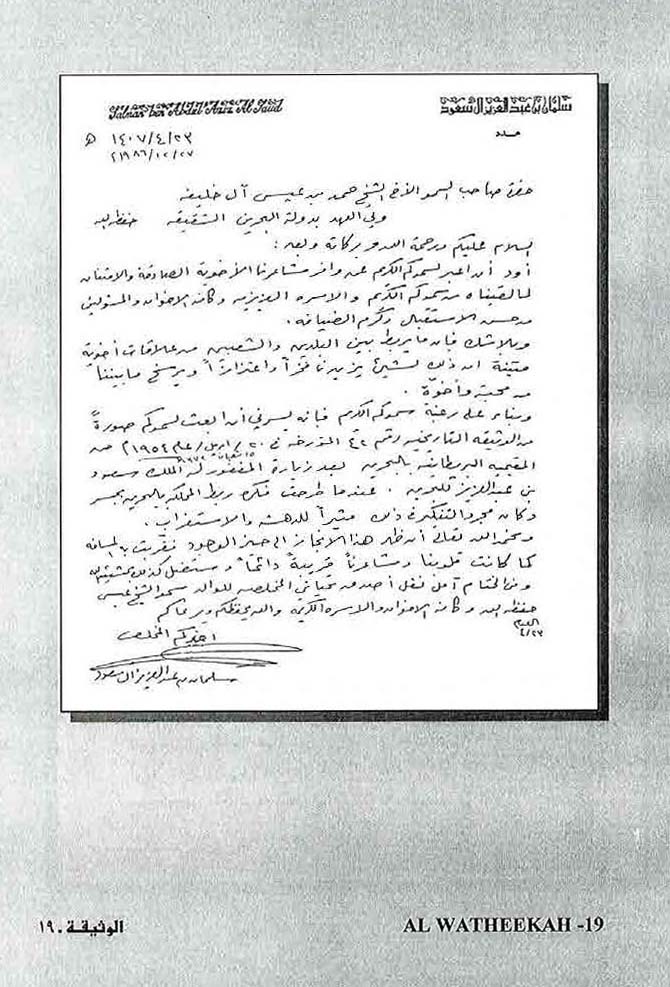 سلمان بن عبد العزيز آل سعود
Salman ben Abdel Aziz Al Saud
١٤٠٧/٤/٢٣ هـ
١٩٨٦/١٢/٢٧
حضرة صاحب السمو الأخ الشيخ حمد بن عيسى آل خليفه
ولي العهد بدولة البحرين الشقيقه حفظه الله
السلام عليكم ورحمة الله وبركاته وبعد :
أود أن أعبر لسموكم الكريم عن وافر مشاعرنا الأخوية الصادقة والامتنان
لما لقيناه من سموكم الكريم والاسره العزيزه وكافة الاخوان والمسئولين
من حسن الاستقبال وكرم الضيافه .
وبلا شك فإن ما يربط بين البلدين والشعبين من علاقات أخوية
متينة ان ذلك لشيئ يزيدنا فخراً واعتزازاً ويرسخ ما بيننا
من محبة وأخوّة .
وبناء على رغبة سموكم الكريم فإنه يسرني أن ابعث لسموكم صورةً
من الوثيقه التاريخيه رقم ٤٤ المؤرخه في ٢٠/ابريل/عام ١٩٥٤ من
المقيميه البريطانيه بالبحرين بعد زيارة المغفور له الملك سعود
بن عبد العزيز للبحرين . عندما طرحت فكرة ربط المملكه بالبحرين بجسر
وكان مجرد التفكير في ذلك مثيراً للدهشه والاستغراب .
ونحمد الله تعالى أن ظهر هذا الانجاز الى حيز الوجود فقربت به المسافه
كما كانت قلوبنا ومشاعرنا قريبةً دائماً وستضل كذلك بمشيئة الله
وفي الختام آمل نقل أصدق تحياتي المخلصه للوالد سمو الشيخ عيسى
حفظه الله وكافة الاخوان والاسره الكريمه والله يحفظكم ويرعاكم
٤/٢٣
أخوكم المخلص
سلمان بن عبد العزيز آل سعود
الوثيقة . ١٩
AL WATHEEKAH -19